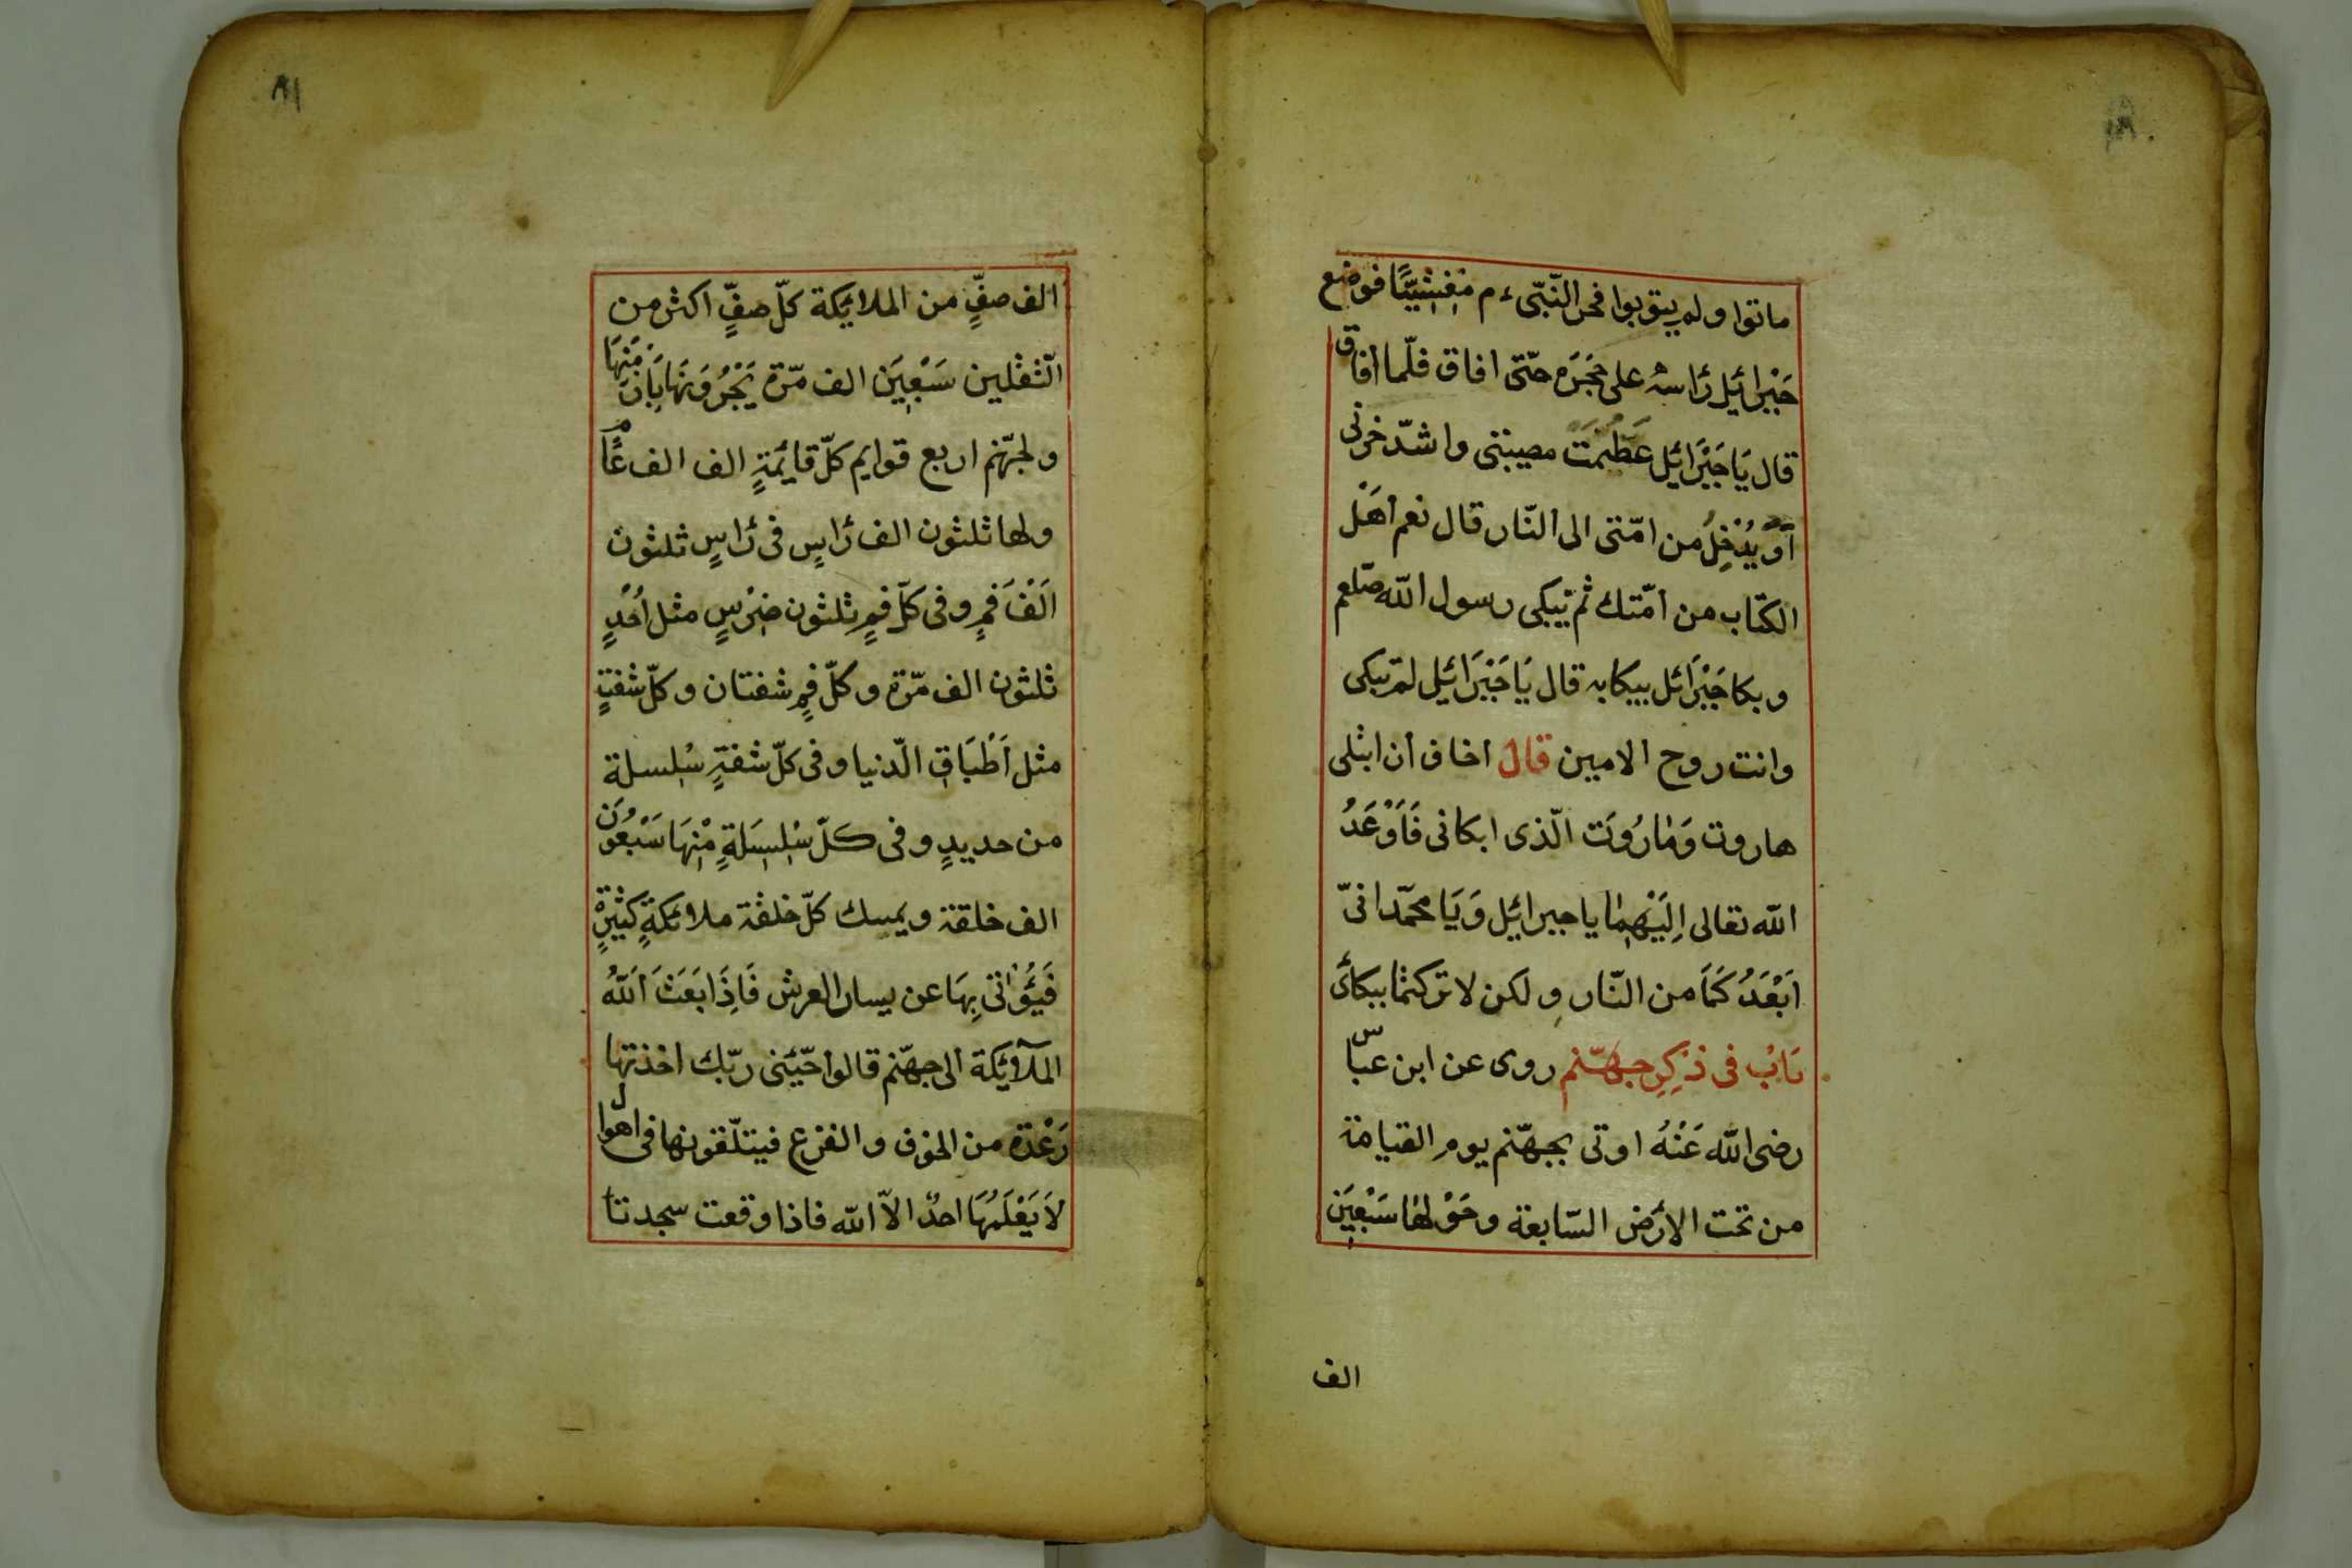 ماتوا ولم يتوبوا فخر النّبىء م مَغْشِيًّا فوضع
جَبْرائيل رَاسه على حَجَرِه حتّى افاق فلّما أفاق
قال يَا جَبْرَائيل عَظُمَت مصيبتى واشدّ حزنى
اَوَ يُدْخِلُ من امّتى الى النّار قال نعم اَهْل
الكتاب من امّتك ثم يَبكى رسول الله صلعم
وبكا جَبْرَائل ببكايه قال يَا جَبْرَائيل لم تَبكى
وانت روح الامين قال اخاف ان ابتلى
هاروت وَمَارُوَت الّذى ابكانى فَاَوْعَدُ
الله تعالى اِلَيْهِمَا يا جبرائيل وَيَا محمّد انىّ
اَبْعَدُ كُمَا من النّار ولكن لا تركتما ببكائ
بَابُ فى ذِكِرِ جهنّم روى عن ابن عباس
رضى الله عَنْهُ اوتى بجهنّم يوم القيامة
من تحت الارَض السّابعة وحَوْلهَا سَبْعِيَن
الف
٨١
الف صفٍّ من الملايكة كلّ صفٍّ اكثر من
الثّقلين سَبْعِيَن الف مرّة يَجْرُوَنَهَا
ولجهنّم اربع قوايم كلّ قايمةٍ الف الف عامًا
ولها ثلثون الف رَاسٍ فى رَاسٍ ثلثون
اَلْفَ فمٍ وفى كلّ فمٍ ثلثون ضِرْسٍ مثل اُحُدٍ
ثلثون الف مرّة وكلّ فمٍ شفتان وكلّ شفتٍ
مثل اَطْبَاقِ الّدنيا وفى كلّ شفةٍ سْلِسلة
من حديدٍ وفى كلّ سْلِسِلَةٍ مْنِهَا سَبْعُوَن
الف خلقة ويمسك كلّ خلقة ملائكةٍ كثيْرَةٍ
فَيُؤْاتى بِهَا عن يسار العرش فَاِذَا بَعَثَ اَللهُ
الملآئكة الى جهنّم قالوا حّيئنى ربّك اخذتها
رَعْدَة من الخوف والفزع فيتلّقونها فى اهوال
لاَ يَعْلَمُهَا احدٌ الاّ الله فاذا وقعت سجدتا